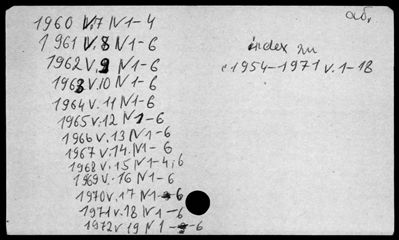 1960 V.7 N1-4
1961 V.8 N1-6
1962 V.9 N1-6
1963 V.10 N1-6
1964 V.11 N1-6
1965 V.12 N1-6
1966 V.13 N1-6
1967 V.14 N1-6
1968 V.15 N1-4,6
1969 V.16 N1-6
1970 V.17 N1-6
1971 V.18 N1-6
1972 V.19 N1-6
аб.
index zu
1954-1971 V.1-18